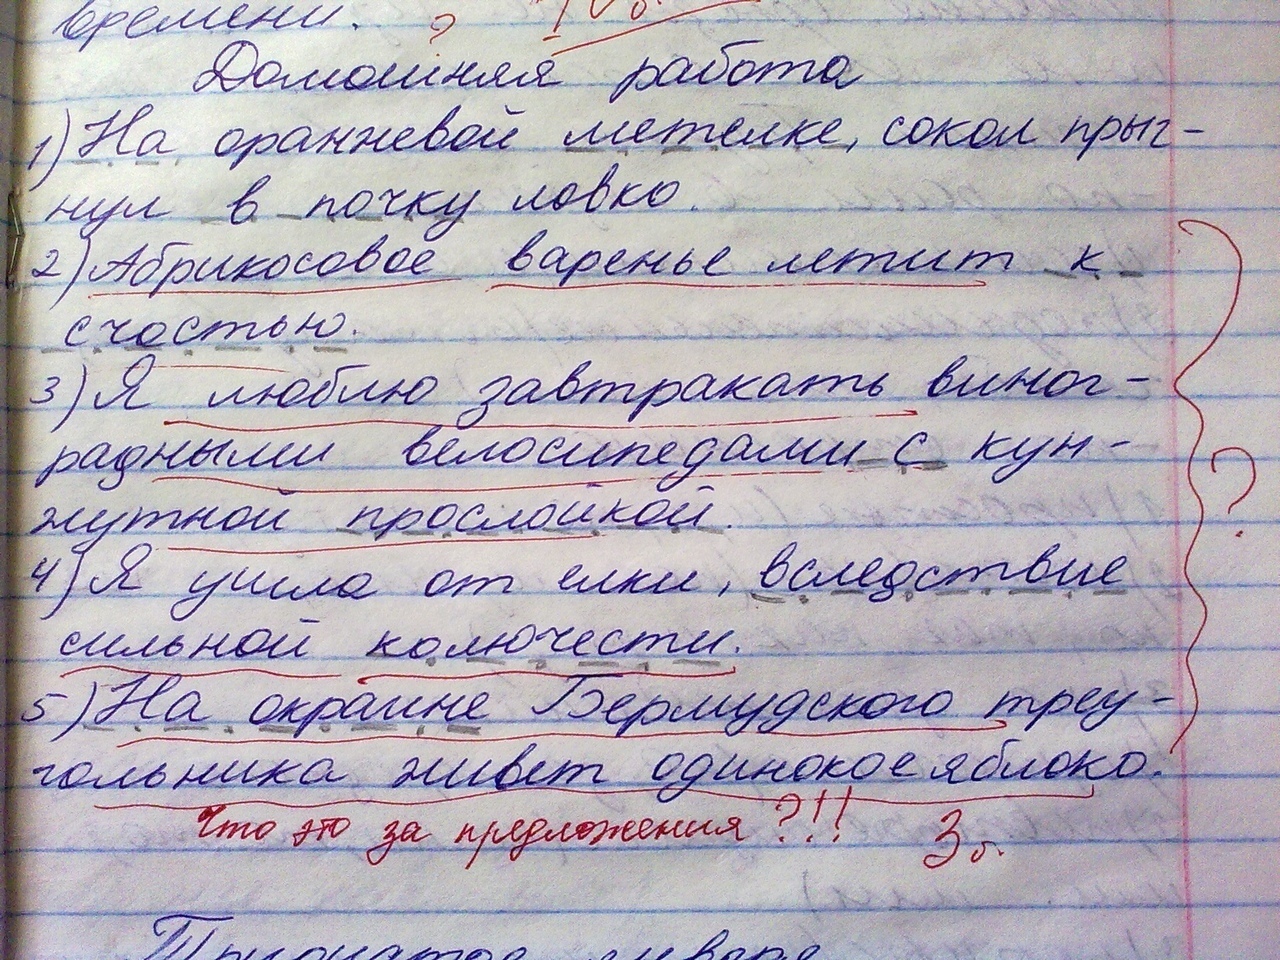 времени.
?
Домашняя работа
1) На оранжевой метелке, сокол прыг-
нул в почку ловко.
2) Абрикосовое варенье летит к
счастью.
3) Я люблю завтракать виног-
радными велосипедами с кун-
жутной прослойкой.
?
4) Я ушла от елки, вследствие
сильной колючести.
5) На окраине Бермудского треу-
гольника живет одинокое яблоко.
Что это за предложения?!! 3б.
Тринадцатое января